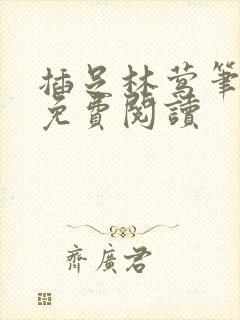 插足林莺筆
免費閱讀
齊廣君